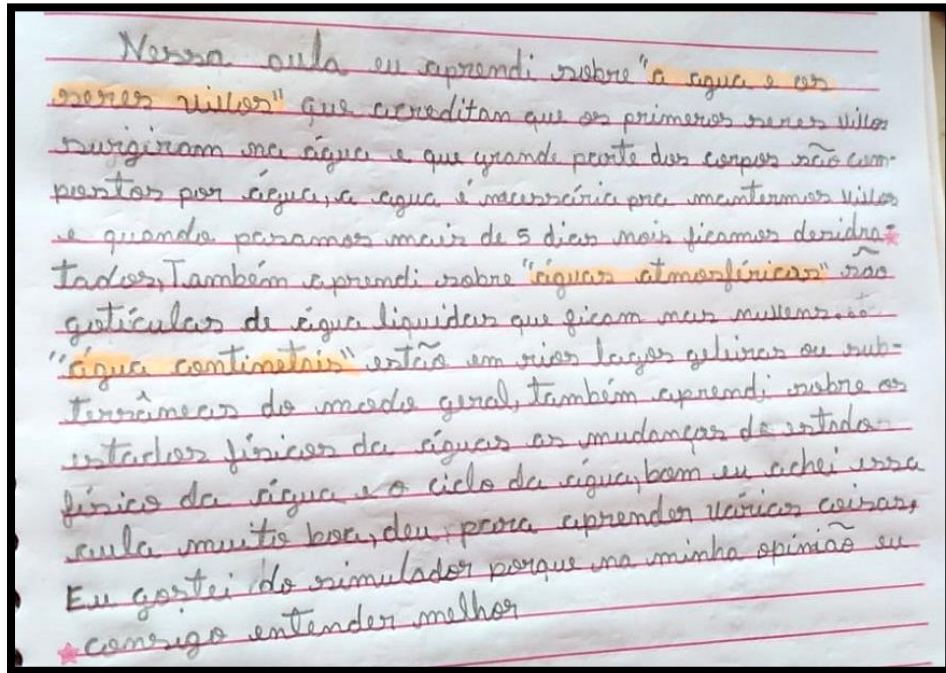 Nessa aula eu aprendi sobre "a agua e os
seres vivos" que acreditan que os primeros seres vivos
surgiram na água e que grande parte dos corpos são com-
postos por água, a agua é necessária pra mantermos vivos
e quando pasamos mais de 5 dias mais ficamos desidra-
tados, Também aprendi sobre "águas atmosféricas" são
gotículas de água liquidas que ficam nas nuvens...
"água continetais" estão em rios lagos geleiras ou sub-
terrâneas do modo geral, também aprendi sobre os
estados físicos da águas as mudanças de estado
físico da água e o ciclo da água, bom eu achei essa
aula muito boa, deu, para aprender várias coisas,
Eu gostei do simulador porque na minha opinião eu
consigo entender melhor